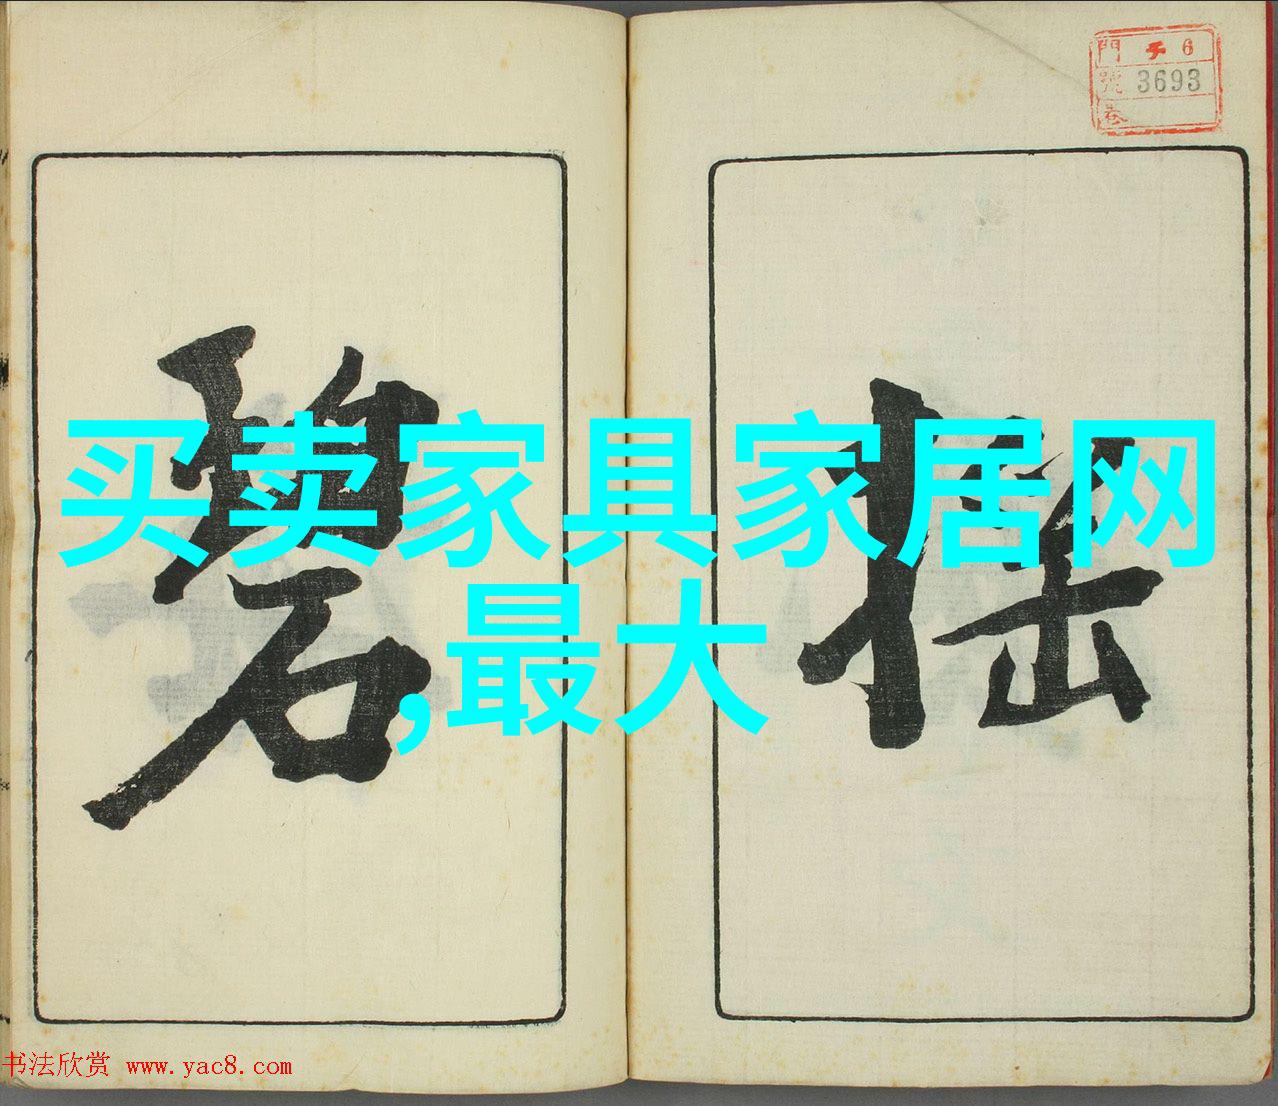 門 チ 6
號 3693
卷
搖
碧
买卖家具家居网
,最大
书法欣赏 www.yac8.com